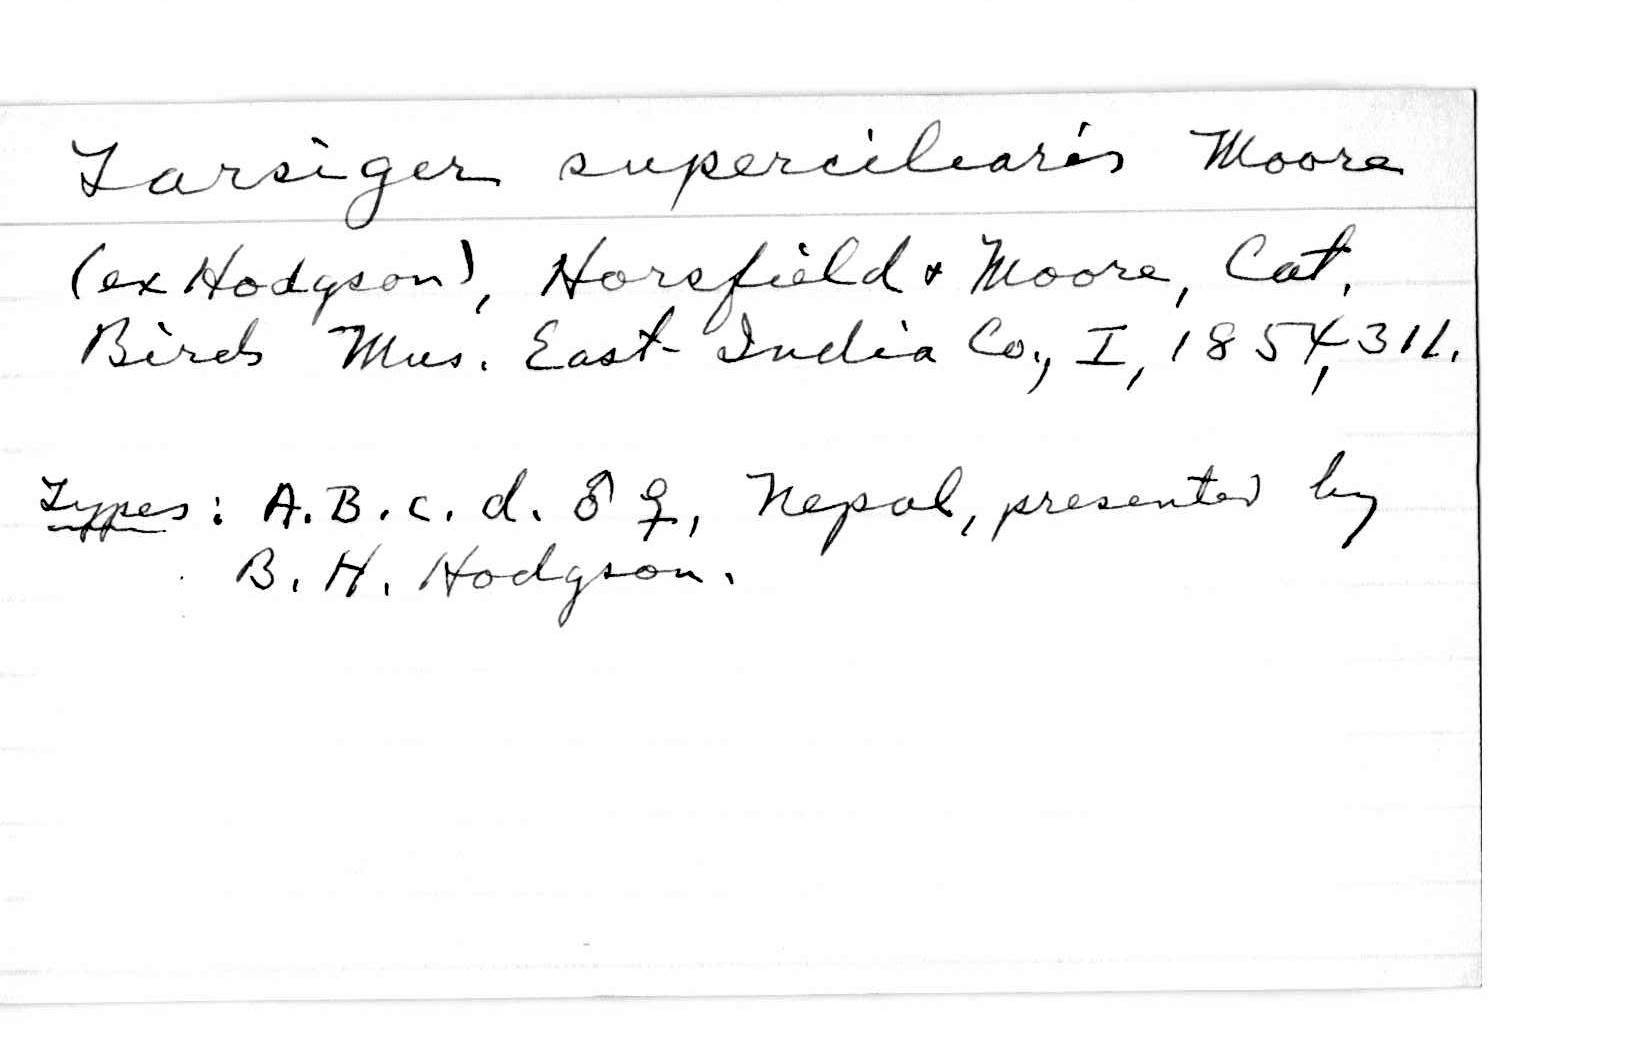 Tarsiger superciliaris Moore
(ex Hodgson), Horsfield & Moore, Cat.
Birds Mus. East India Co., I, 1854, 311.
Types: A. B. c. d. ♂ ♀, Nepal, presented by
B. H. Hodgson.